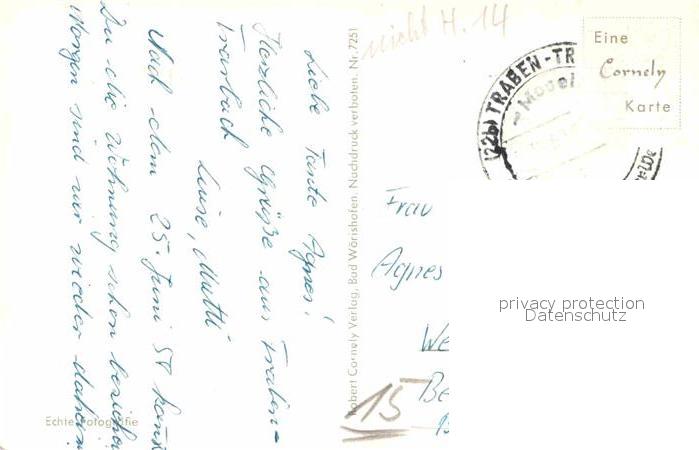 Liebe Tante Agnes!
Herzliche Grüße aus Traben-
Trarbach
Luise, Mutti
Nach dem 25. Juni 59 kannst
Du die Wohnung schon beziehen
Morgen sind wir wieder daheim
Echte Fotografie
Robert Cornely Verlag, Bad Wörishofen. Nachdruck verboten. Nr. 7251
nicht H. 14
(22b) TRABEN-TR
Mosel
Eine
Cornely
Karte
Frau
Agnes
We
Be
15
privacy protection
Datenschutz